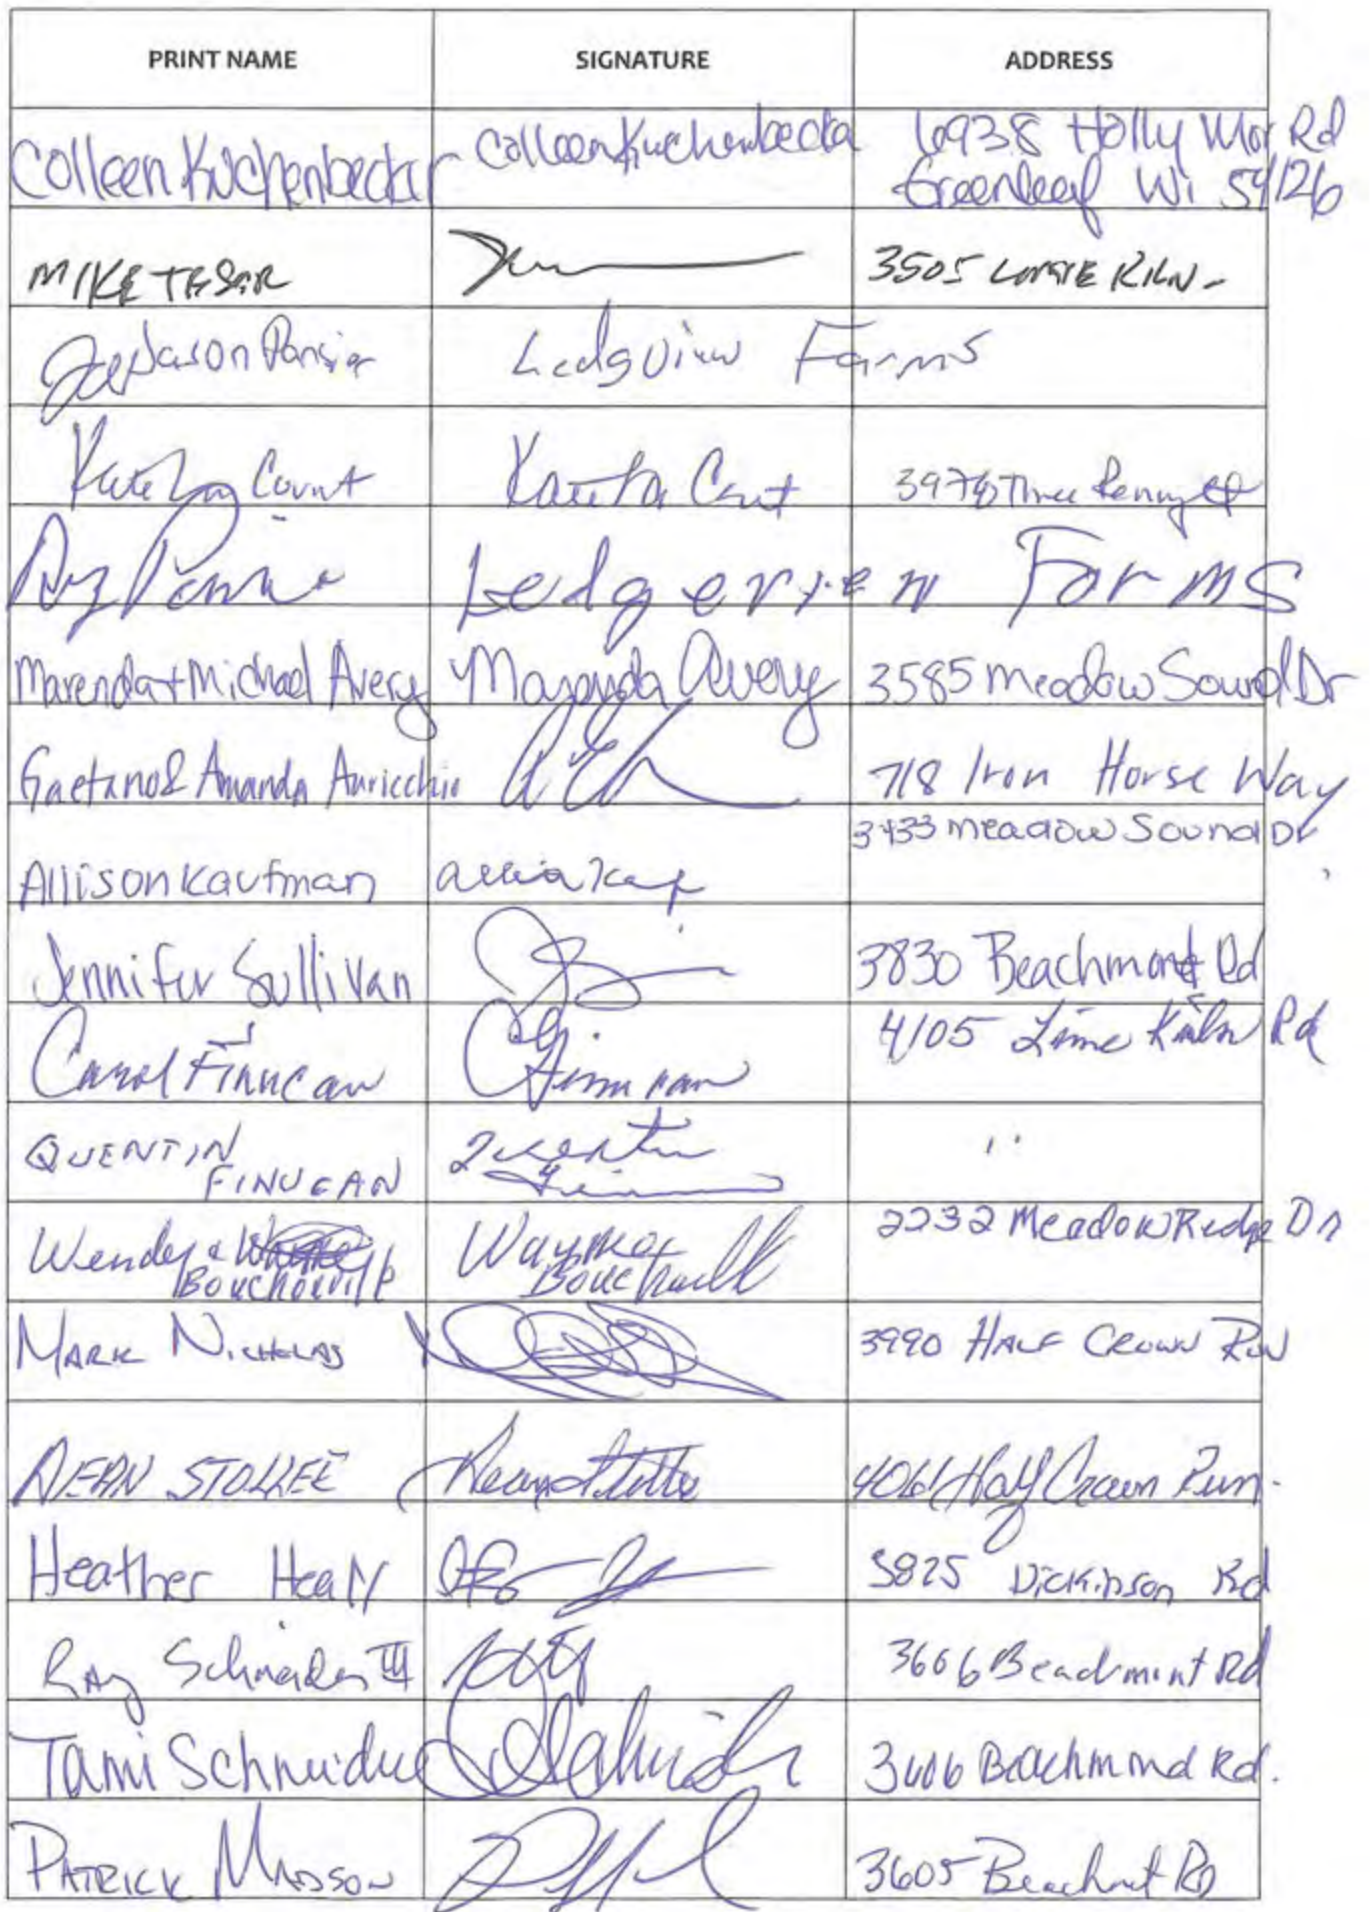 PRINT NAME SIGNATURE ADDRESS
Colleen Kuchenbecker Colleen Kuchenbecker 6938 Holly Mor Rd
Greenleaf Wi 54126
MIKE TESAR 3505 LIME KILN
Jason Pansier Ledgview Farms
Count 3976 Three Penny Ct
Ledgeview Farms
Marenda + Michael Avery Maranda Avery 3585 Meadow Sound Dr
Gaetano & Amanda Auricchio 718 Iron Horse Way
3433 Meadow Sound Dr
Allison Kaufman
Jennifer Sullivan 3830 Beachmont Rd
Carol Finucan C Finucan 4105 Lime Kiln Rd
QUENTIN Quentin "
FINUCAN
Wendy & Wayne 2232 Meadow Ridge Dr
MARK NICHOLAS 3990 HALF CROWN RUN
DEAN STOLLEE 4061 Half Crown Run.
Heather Healy 3825 Dickinson Rd
Ray Schneider III 3606 Beachmont Rd
Tami Schneider 3606 Beachmond Rd.
PATRICK MADSON 3605 Beachmont Rd